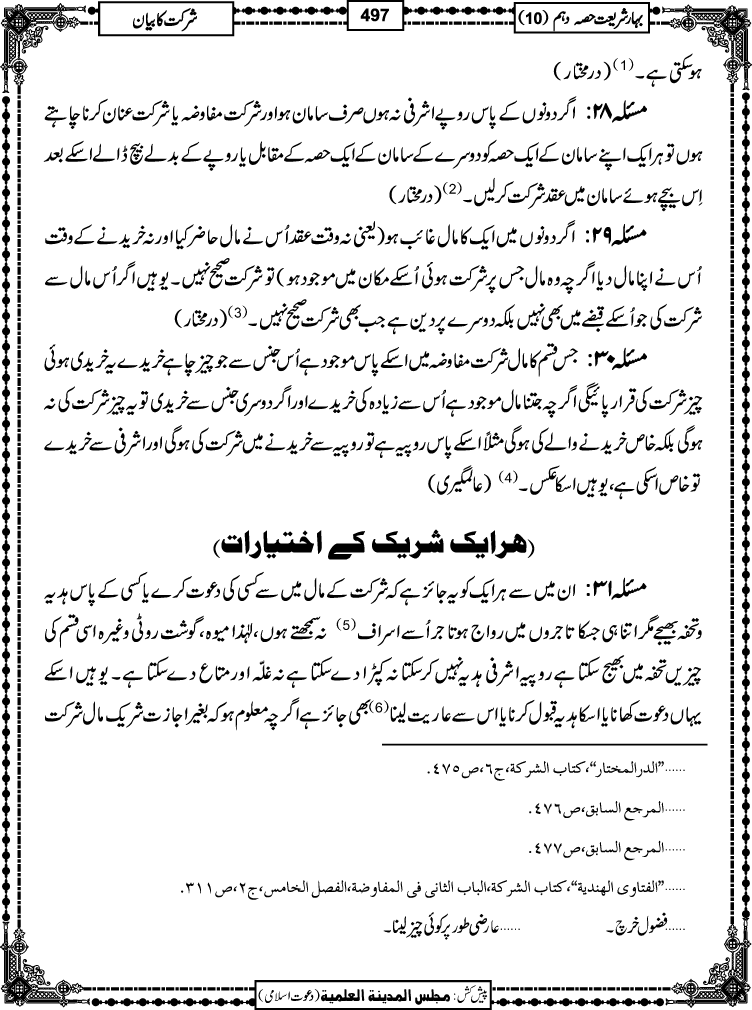 بہارِ شریعت حصہ دہم (10)
497
شرکت کا بیان
ہو سکتی ہے۔ (1) (درمختار)
مسئلہ ۲۸: اگر دونوں کے پاس روپے اشرفی نہ ہوں صرف سامان ہو اور شرکت مفاوضہ یا شرکت عنان کرنا چاہتے
ہوں تو ہر ایک اپنے سامان کے ایک حصہ کو دوسرے کے سامان کے ایک حصہ کے مقابل یا روپے کے بدلے بیچ ڈالے اسکے بعد
اِس بیچے ہوئے سامان میں عقد شرکت کرلیں۔ (2) (درمختار)
مسئلہ ۲۹: اگر دونوں میں ایک کا مال غائب ہو (یعنی نہ وقت عقد اُس نے مال حاضر کیا اور نہ خریدنے کے وقت
اُس نے اپنا مال دیا اگرچہ وہ مال جس پر شرکت ہوئی اُسکے مکان میں موجود ہو) تو شرکت صحیح نہیں۔ یوہیں اگر اُس مال سے
شرکت کی جو اُسکے قبضے میں بھی نہیں بلکہ دوسرے پر دین ہے جب بھی شرکت صحیح نہیں۔ (3) (درمختار)
مسئلہ ۳۰: جس قسم کا مال شرکت مفاوضہ میں اسکے پاس موجود ہے اُس جنس سے جو چیز چاہے خریدے یہ خریدی ہوئی
چیز شرکت کی قرار پائیگی اگرچہ جتنا مال موجود ہے اُس سے زیادہ کی خریدے اور اگر دوسری جنس سے خریدی تو یہ چیز شرکت کی نہ
ہوگی بلکہ خاص خریدنے والے کی ہوگی مثلاً اسکے پاس روپیہ ہے تو روپیہ سے خریدنے میں شرکت کی ہوگی اور اشرفی سے خریدے
تو خاص اسکی ہے، یوہیں اسکا عکس۔ (4) (عالمگیری)
(ھر ایک شریک کے اختیارات)
مسئلہ ۳۱: ان میں سے ہر ایک کو یہ جائز ہے کہ شرکت کے مال میں سے کسی کی دعوت کرے یا کسی کے پاس ہدیہ
و تحفہ بھیجے مگر اتنا ہی جسکا تاجروں میں رواج ہو تاجر اُسے اسراف (5) نہ سمجھتے ہوں، لہٰذا میوہ، گوشت روٹی وغیرہ اسی قسم کی
چیزیں تحفہ میں بھیج سکتا ہے روپیہ اشرفی ہدیہ نہیں کرسکتا نہ کپڑا دے سکتا ہے نہ غلّہ اور متاع دے سکتا ہے۔ یوہیں اسکے
یہاں دعوت کھانا یا اسکا ہدیہ قبول کرنا یا اس سے عاریت لینا (6) بھی جائز ہے اگرچہ معلوم ہو کہ بغیر اجازت شریک مال شرکت
......”الدرالمختار“، کتاب الشرکۃ، ج٦، ص٤٧٥.
......المرجع السابق، ص٤٧٦.
......المرجع السابق، ص٤٧٧.
......”الفتاوی الھندیۃ“، کتاب الشرکۃ، الباب الثانی فی المفاوضۃ، الفصل الخامس، ج٢، ص٣١١.
......فضول خرچ۔ ......عارضی طور پر کوئی چیز لینا۔
پیش کش: مجلس المدینۃ العلمیۃ (دعوت اسلامی)